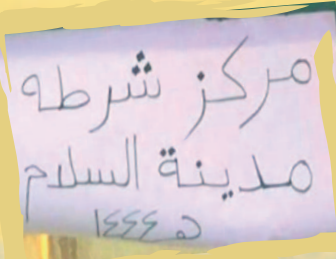 مركز شرطه
مدينة السلام
١٤٤٤ هـ